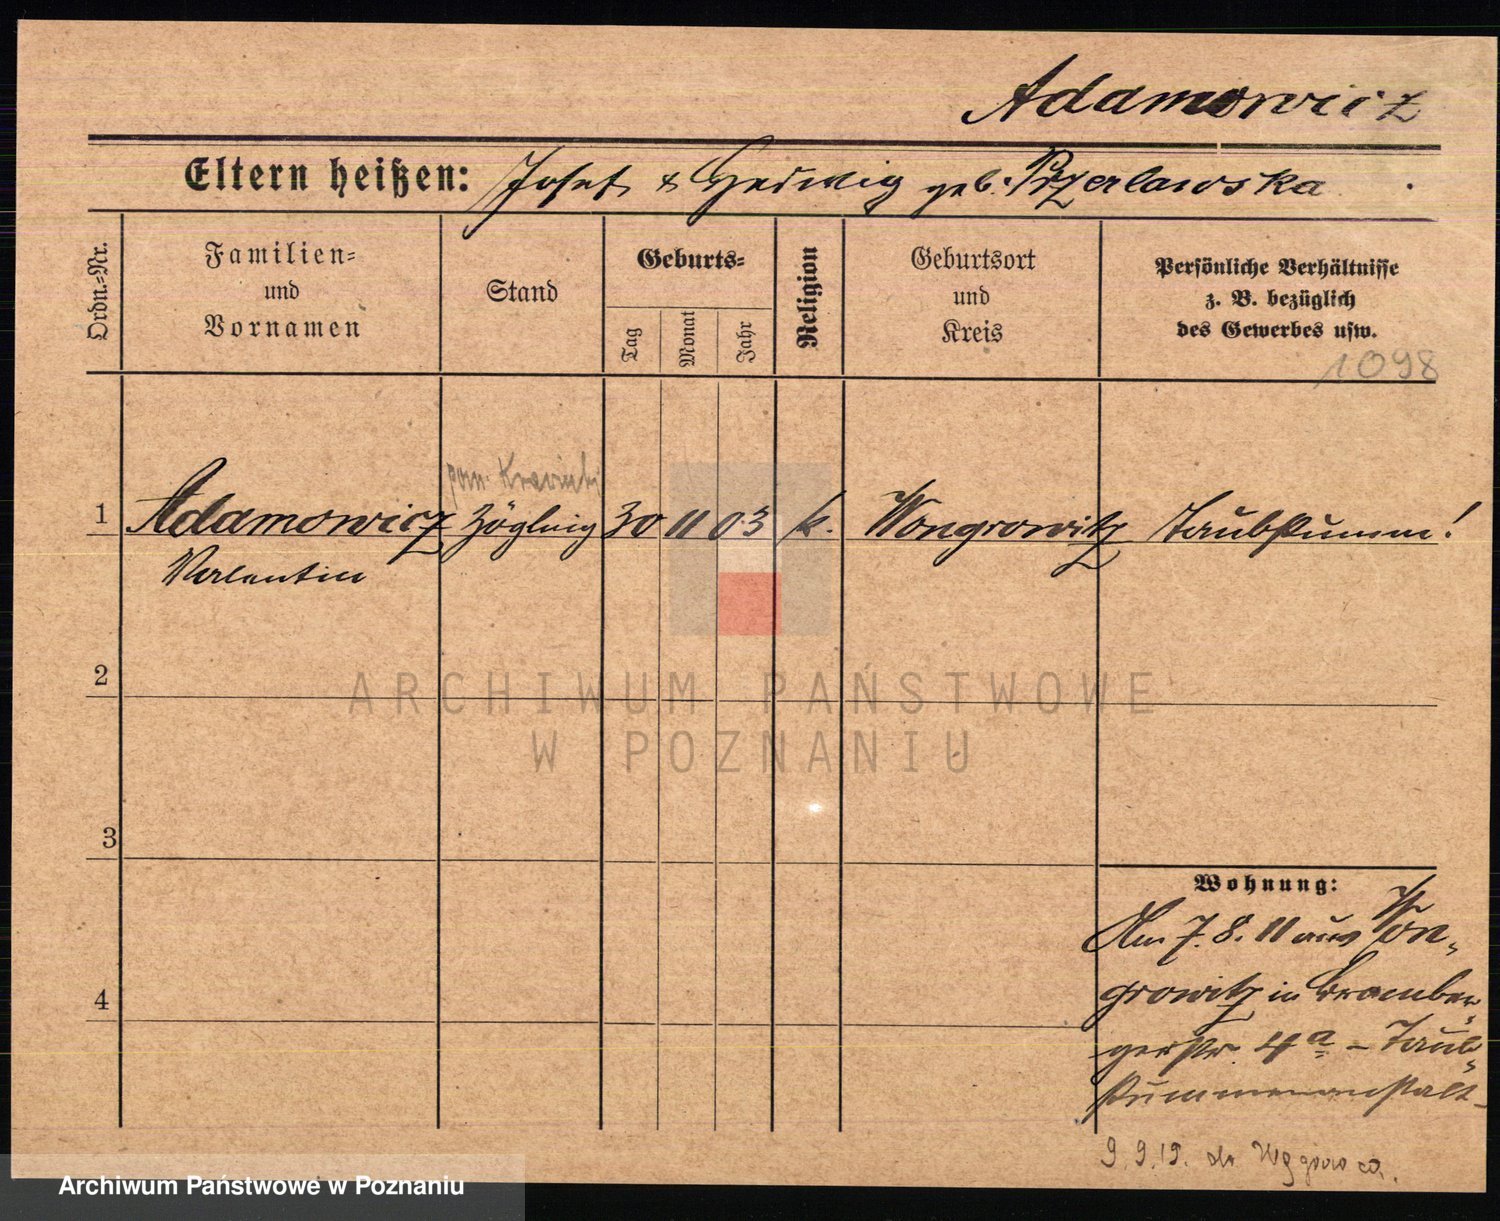 Adamowicz
Eltern heißen: Josef & Hedwig geb. Przerlawska
Ordn.-Nr.
Familien-
und
Vornamen
Stand
Geburts-
Tag
Monat
Jahr
Religion
Geburtsort
und
Kreis
Persönliche Verhältnisse
z. B. bezüglich
des Gewerbes usw.
1098
1 Adamowicz Zögling 30 11 03 k. Wongrowitz taubstumm!
Valentin
2
ARCHIWUM PAŃSTWOWE
W POZNANIU
3
Wohnung:
Am 7. 8. 11 aus Won-
growitz in Bromber-
gerstr. 4a - Taub-
stummenanstalt
4
9.9.19. do Wągrowca.
Archiwum Państwowe w Poznaniu